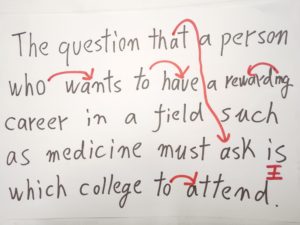 The question that a person
who wants to have a rewarding
career in a field such
as medicine must ask is
which college to attend.